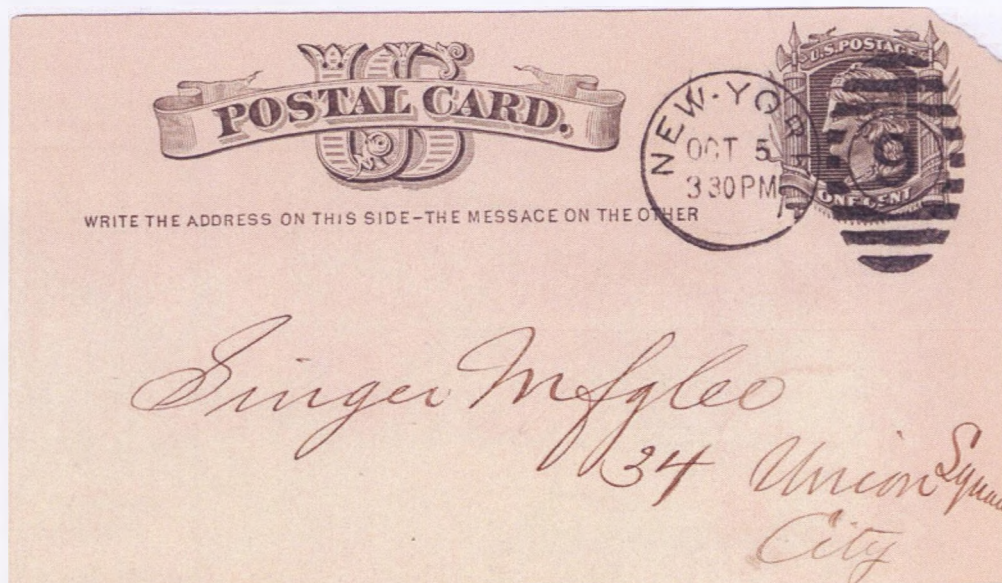 US
POSTAL CARD.
WRITE THE ADDRESS ON THIS SIDE-THE MESSAGE ON THE OTHER
NEW-YORK
OCT 5
330PM
U.S. POSTAGE
ONE CENT
9
Singer Mfg Co
34 Union Squa
City